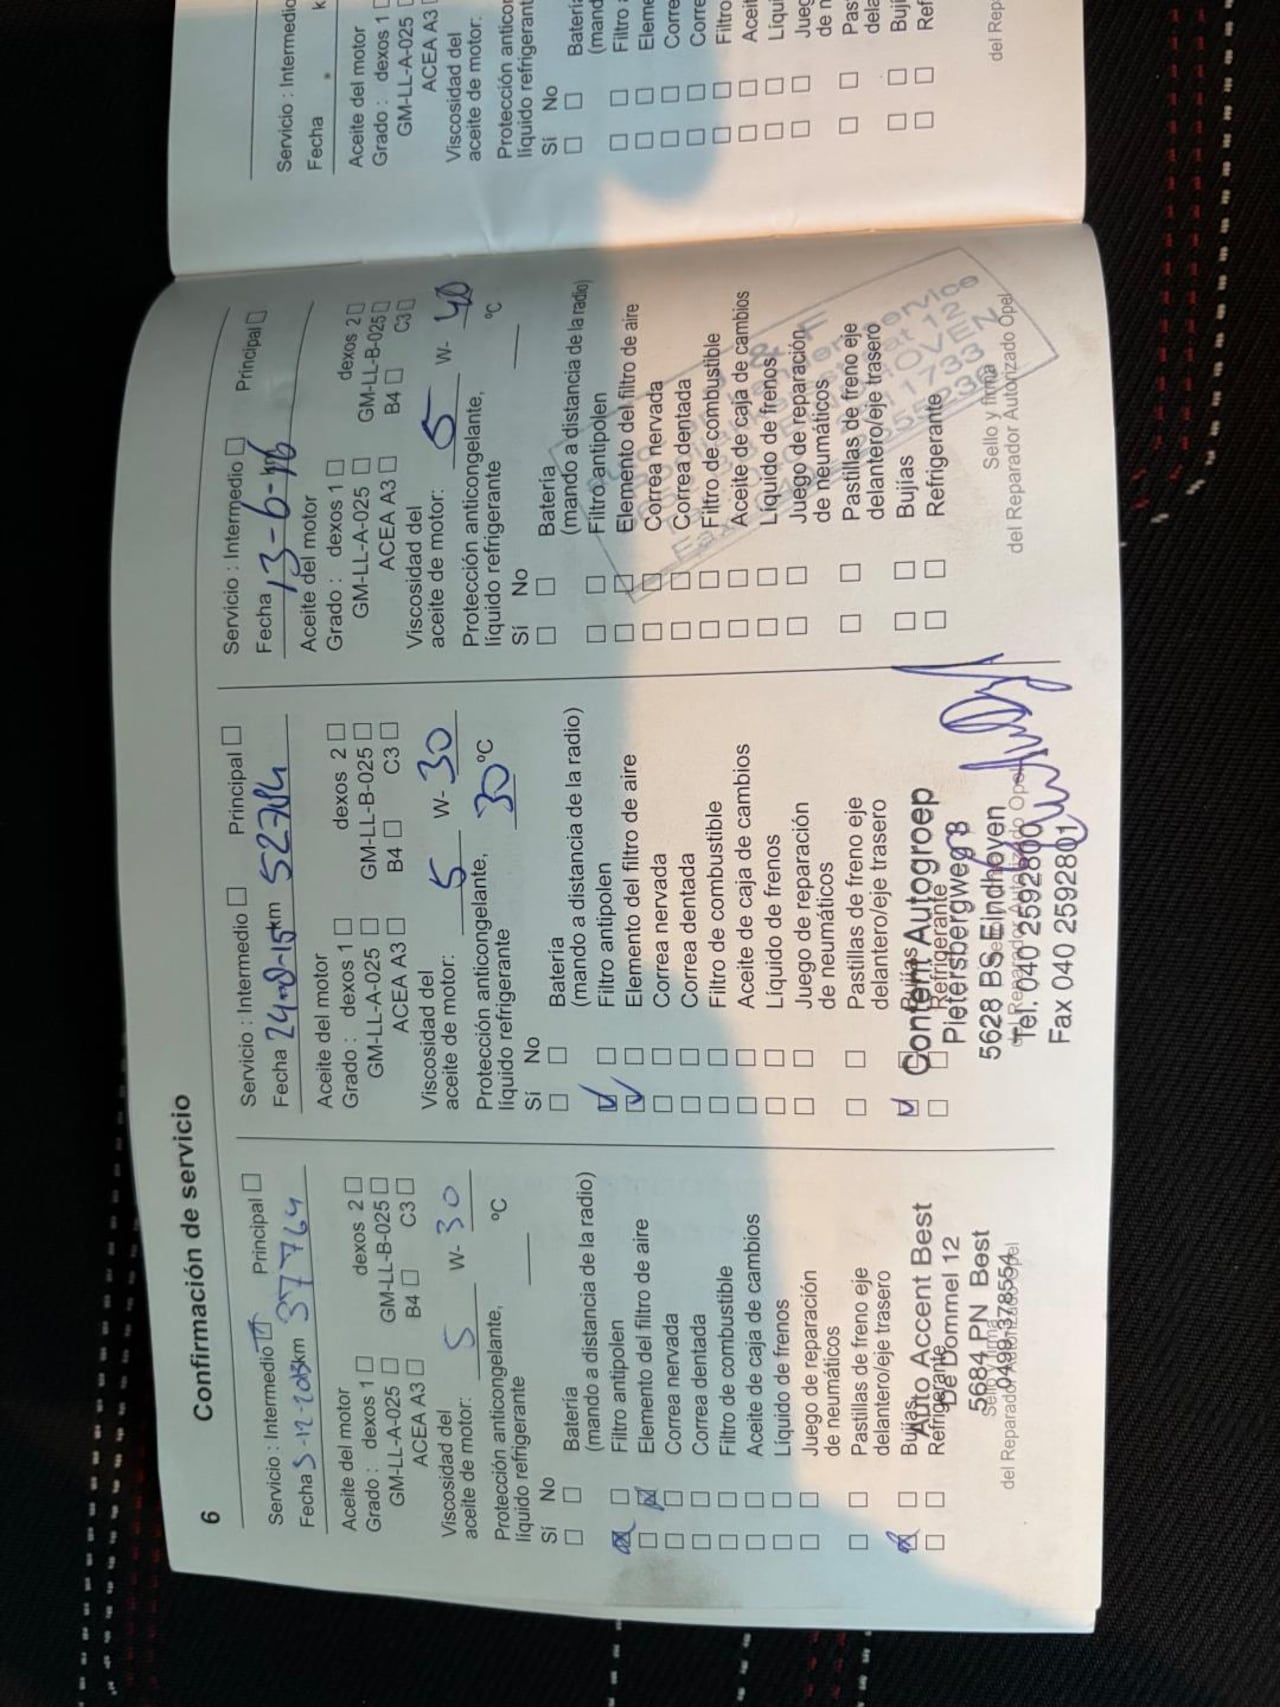 6 Confirmación de servicio
Servicio : Intermedio Principal
Fecha 5-12-2013 km 37764
Aceite del motor
Grado : dexos 1 dexos 2
GM-LL-A-025 GM-LL-B-025
ACEA A3 B4 C3
Viscosidad del
aceite de motor: 5 W- 30
Protección anticongelante,
líquido refrigerante °C
Sí No
Batería
(mando a distancia de la radio)
Filtro antipolen
Elemento del filtro de aire
Correa nervada
Correa dentada
Filtro de combustible
Aceite de caja de cambios
Líquido de frenos
Juego de reparación
de neumáticos
Pastillas de freno eje
delantero/eje trasero
Bujías
Refrigerante
Auto Accent Best
De Dommel 12
5684 PN Best
0499-378554
Sello y firma
del Reparador Autorizado Opel
Servicio : Intermedio Principal
Fecha km 52784
Aceite del motor
Grado : dexos 1 dexos 2
GM-LL-A-025 GM-LL-B-025
ACEA A3 B4 C3
Viscosidad del
aceite de motor: 5 W- 30
Protección anticongelante,
líquido refrigerante 30 °C
Sí No
Batería
(mando a distancia de la radio)
Filtro antipolen
Elemento del filtro de aire
Correa nervada
Correa dentada
Filtro de combustible
Aceite de caja de cambios
Líquido de frenos
Juego de reparación
de neumáticos
Pastillas de freno eje
delantero/eje trasero
Bujías
Refrigerante
Content Autogroep
Pietersbergweg 3
5628 BS Eindhoven
Tel. 040 2592800
Fax 040 2592801
del Reparador Autorizado Opel
Servicio : Intermedio Principal
Fecha 13-6-16
Aceite del motor
Grado : dexos 1 dexos 2
GM-LL-A-025 GM-LL-B-025
ACEA A3 B4 C3
Viscosidad del
aceite de motor: 5 W- 40
Protección anticongelante,
líquido refrigerante °C
Sí No
Batería
(mando a distancia de la radio)
Filtro antipolen
Elemento del filtro de aire
Correa nervada
Correa dentada
Filtro de combustible
Aceite de caja de cambios
Líquido de frenos
Juego de reparación
de neumáticos
Pastillas de freno eje
delantero/eje trasero
Bujías
Refrigerante
Sello y firma
del Reparador Autorizado Opel
Servicio : Intermedio
Fecha k
Aceite del motor
Grado : dexos 1
GM-LL-A-025
ACEA A3
Viscosidad del
aceite de motor:
Protección anticon
líquido refrigerant
Sí No
Batería
(mand
Filtro a
Eleme
Corre
Corre
Filtro
Aceit
Líqui
Jueg
de n
Past
dela
Bují
Ref
del Rep